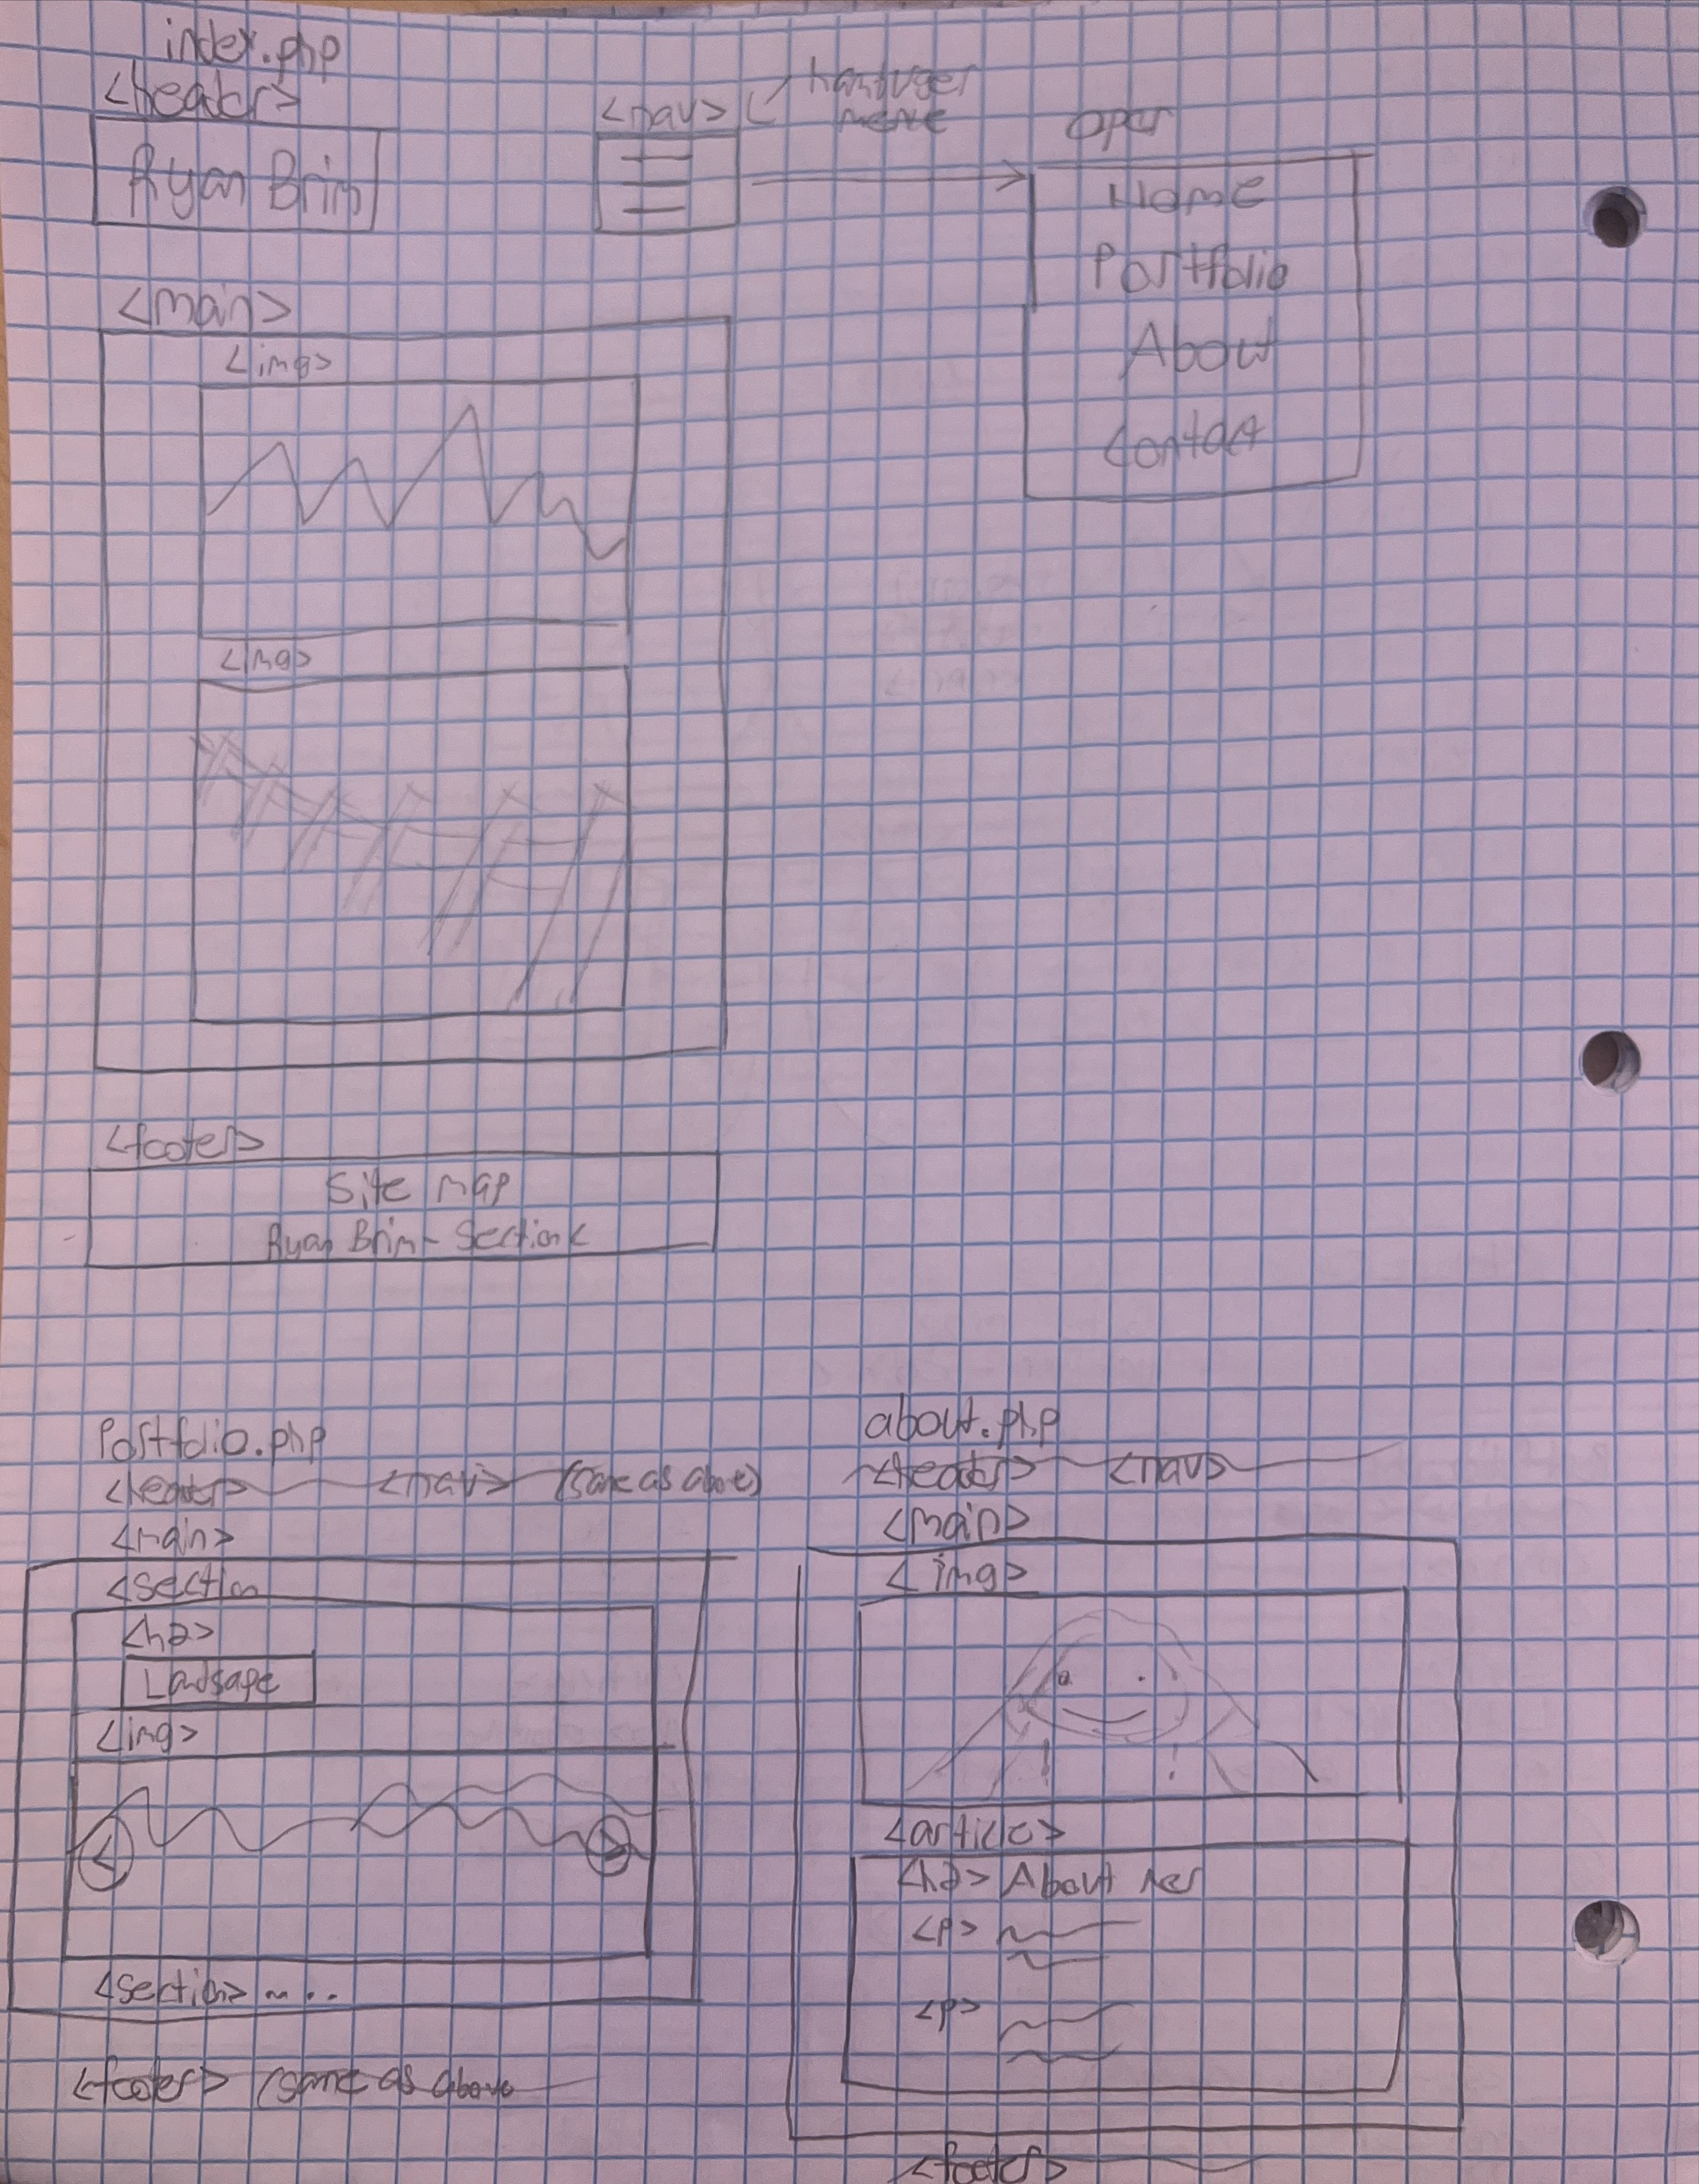 index.php
<header>
Ryan Brim
<nav>
hamburger
menu
open
Home
Portfolio
About
Contact
<main>
<img>
<img>
<footer>
Site map
Ryan Brim - Section
Portfolio.php
<header> <nav> (same as above)
<main>
<section
<h2>
<img>
<section> ...
<footer> (same as above
about.php
<header> <nav>
<main>
<img>
<article>
<h2> About
<p>
<p>
<footer>